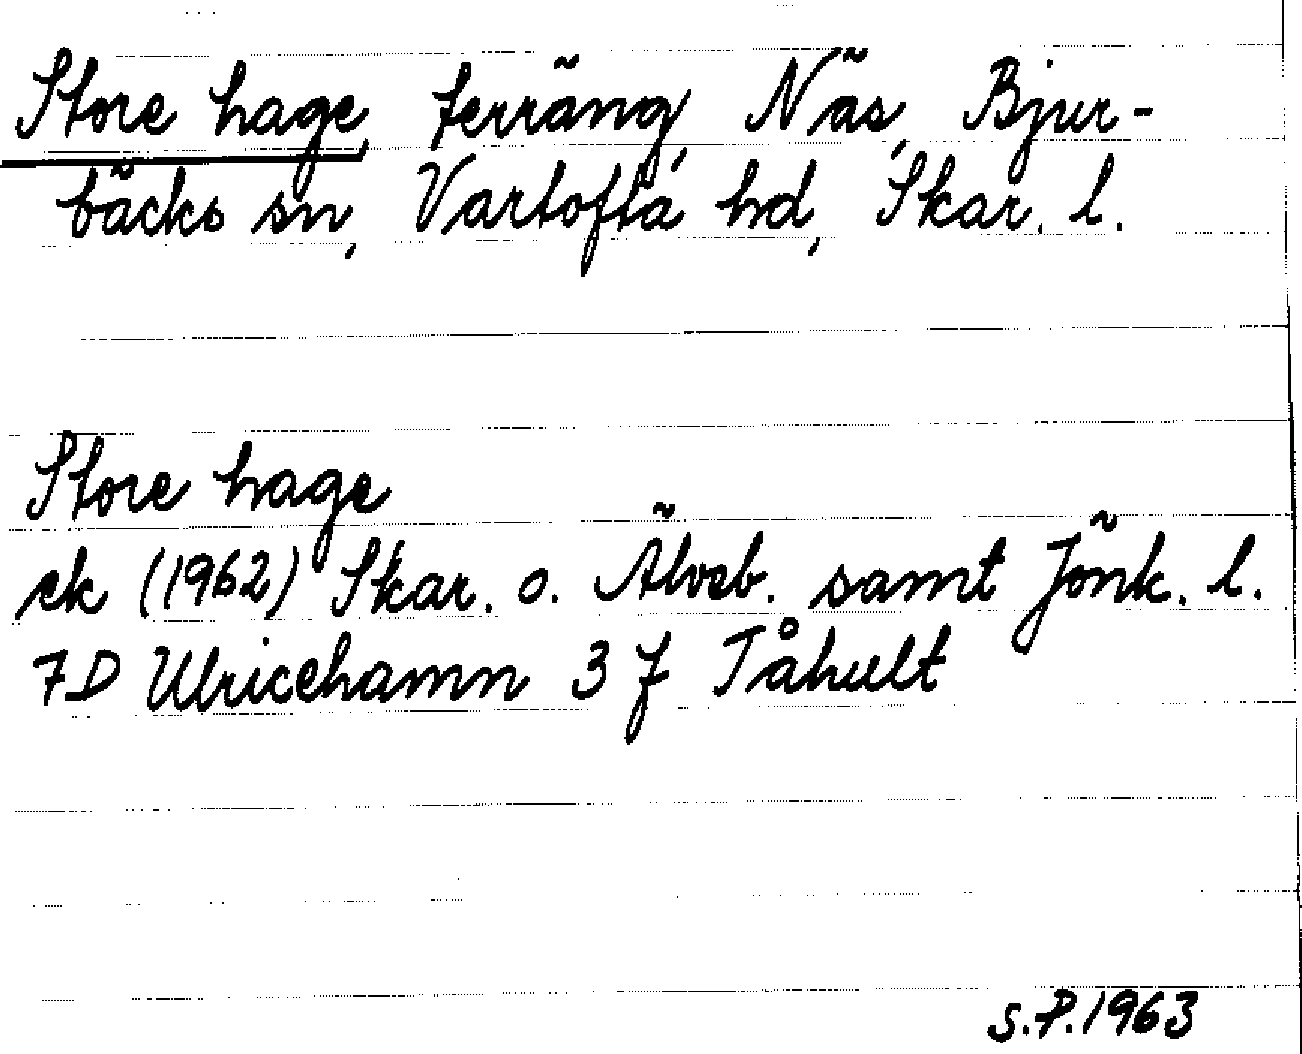 Store hage, terräng, Näs, Bjur-
bäcks sn, Vartofta hd, Skar. l.
Store hage
ek (1962) Skar. o. Älvsb. samt Jönk. l.
7D Ulricehamn 3 f Tåhult
S.P. 1963